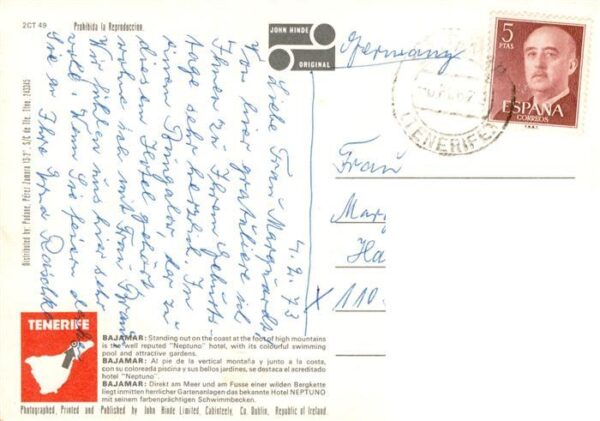 2CT 49
Prohibida la Reproduccion.
JOHN HINDE
ORIGINAL
Germany
5
PTAS
ESPAÑA
CORREOS
TENERIFE
4.2.73
Liebe Frau Marquardt,
Von hier gratuliere ich
Ihnen zu Ihrem Geburts-
tage sehr herzlich. In
einem Bungalow, der zu
diesem Hotel gehört
wohne ich mit Frau
Wir fühlen uns hier sehr
wohl. Wenn Sie feiern
Ihre
Frau
110
Distributed by: Padane, Pérez Zamora 15-2° S/C de Tfe. Tfno.
TENERIFE
BAJAMAR: Standing out on the coast at the foot of high mountains
is the well reputed "Neptuno" hotel, with its colourful swimming
pool and attractive gardens.
BAJAMAR: Al pie de la vertical montaña y junto a la costa,
con su coloreada piscina y sus bellos jardines, se destaca el acreditado
hotel "Neptuno".
BAJAMAR: Direkt am Meer und am Fusse einer wilden Bergkette
liegt inmitten herrlicher Gartenanlagen das bekannte Hotel NEPTUNO
mit seinem farbenprächtigen Schwimmbecken.
Photographed, Printed and Published by John Hinde Limited, Cabinteely, Co. Dublin, Republic of Ireland.